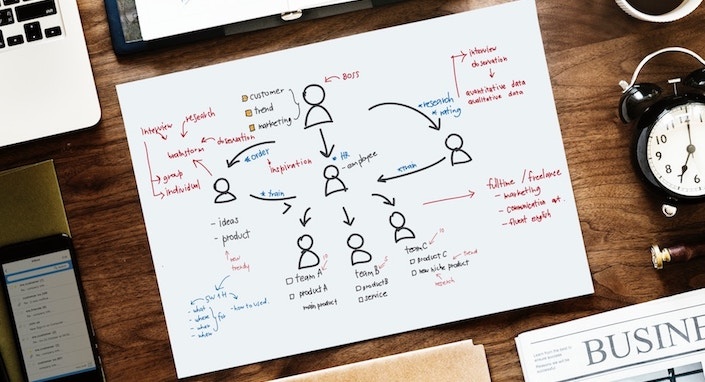 BOSS
customer
trend
marketing
interview
observation
quantitative data
qualitative data
*research
*rating
research
interview
observation
brainstorm
group
individual
*order
inspiration
*HR
-employee
*train
*train
- ideas
- product
new
trendy
fulltime / freelance
- marketing
- communication art.
- fluent english
team A
product A
main product
team B
product B
service
team C
product C
new niche product
trend
research
5W 1H
- what
- where
- when
- how to used.
12
1
2
3
4
5
6
7
8
9
10
11
BUSINE